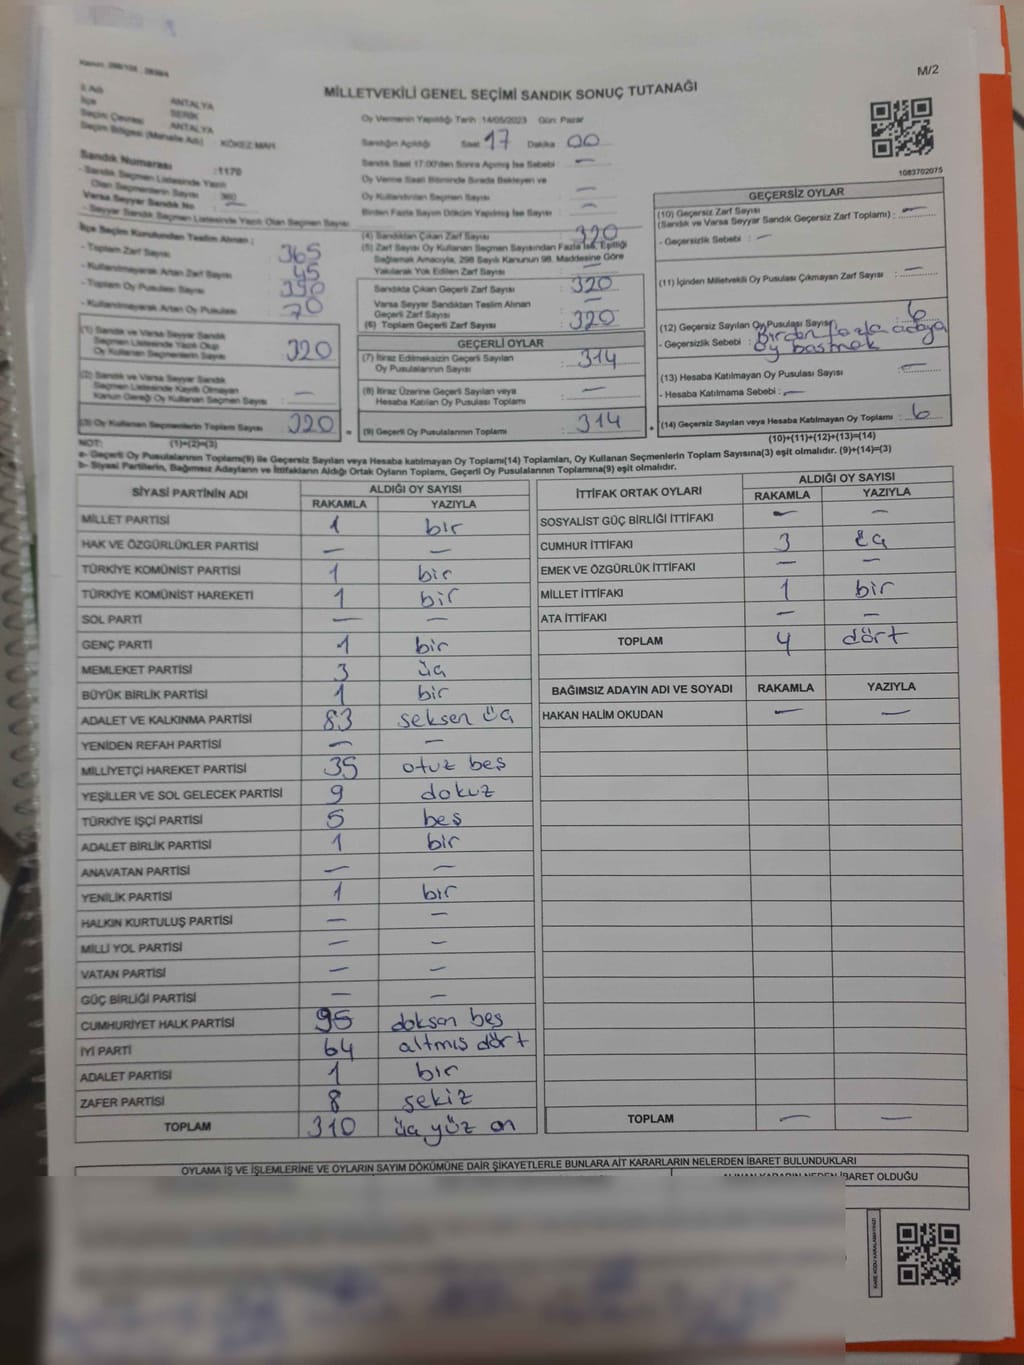 M/2
MİLLETVEKİLİ GENEL SEÇİMİ SANDIK SONUÇ TUTANAĞI
İl Adı ANTALYA
İlçe SERİK
Seçim Çevresi ANTALYA
Seçim Bölgesi (Mahalle Adı) : KÖKEZ MAH.
Sandık Numarası :1170
- Sandık Seçmen Listesinde Yazılı
Olan Seçmenlerin Sayısı
Varsa Seyyar Sandık No —
- Seyyar Sandık Seçmen Listesinde Yazılı Olan Seçmen Sayısı
İlçe Seçim Kurulundan Teslim Alınan ;
- Toplam Zarf Sayısı 365
- Kullanılmayarak Artan Zarf Sayısı 45
- Toplam Oy Pusulası Sayısı 390
- Kullanılmayarak Artan Oy Pusulası 70
(1) Sandık ve Varsa Seyyar Sandık
Seçmen Listesinde Yazılı Olup
Oy Kullanan Seçmenlerin Sayısı : 320
(2) Sandık ve Varsa Seyyar Sandık
Seçmen Listesinde Kayıtlı Olmayan
Kanun Gereği Oy Kullanan Seçmen Sayısı : —
(3) Oy Kullanan Seçmenlerin Toplam Sayısı 320
Oy Vermenin Yapıldığı Tarih :14/05/2023 Gün: Pazar
Sandığın Açıldığı Saat 17 Dakika 00
Sandık Saat 17:00'den Sonra Açılmış İse Sebebi —
Oy Verme Saati Bitiminde Sırada Bekleyen ve
Oy Kullandırılan Seçmen Sayısı : —
Birden Fazla Sayım Döküm Yapılmış İse Sayısı : —
(4) Sandıktan Çıkan Zarf Sayısı 320
(5) Zarf Sayısı Oy Kullanan Seçmen Sayısından Fazla İse, Eşitliği
Sağlamak Amacıyla, 298 Sayılı Kanunun 98. Maddesine Göre
Yakılarak Yok Edilen Zarf Sayısı : —
Sandıkta Çıkan Geçerli Zarf Sayısı : 320
Varsa Seyyar Sandıktan Teslim Alınan
Geçerli Zarf Sayısı : —
(6) Toplam Geçerli Zarf Sayısı : 320
GEÇERLİ OYLAR
(7) İtiraz Edilmeksizin Geçerli Sayılan
Oy Pusulalarının Sayısı : 314
(8) İtiraz Üzerine Geçerli Sayılan veya
Hesaba Katılan Oy Pusulası Toplamı : —
= (9) Geçerli Oy Pusulalarının Toplamı : 314
1083702075
GEÇERSİZ OYLAR
(10) Geçersiz Zarf Sayısı
(Sandık ve Varsa Seyyar Sandık Geçersiz Zarf Toplamı) : —
- Geçersizlik Sebebi : —
(11) İçinden Milletvekili Oy Pusulası Çıkmayan Zarf Sayısı : —
(12) Geçersiz Sayılan Oy Pusulası Sayısı 6
- Geçersizlik Sebebi : Birden fazla adaya
oy basmak
(13) Hesaba Katılmayan Oy Pusulası Sayısı : —
- Hesaba Katılmama Sebebi : —
+ (14) Geçersiz Sayılan veya Hesaba Katılmayan Oy Toplamı : 6
NOT: (1)+(2)=(3)
(10)+(11)+(12)+(13)=(14)
a- Geçerli Oy Pusulasının Toplamı(9) ile Geçersiz Sayılan veya Hesaba katılmayan Oy Toplamı(14) Toplamları, Oy Kullanan Seçmenlerin Toplam Sayısına(3) eşit olmalıdır. (9)+(14)=(3)
b- Siyasi Partilerin, Bağımsız Adayların ve İttifakların Aldığı Ortak Oyların Toplamı, Geçerli Oy Pusulalarının Toplamına(9) eşit olmalıdır.
SİYASİ PARTİNİN ADI ALDIĞI OY SAYISI
RAKAMLA YAZIYLA
MİLLET PARTİSİ 1 bir
HAK VE ÖZGÜRLÜKLER PARTİSİ — —
TÜRKİYE KOMÜNİST PARTİSİ 1 bir
TÜRKİYE KOMÜNİST HAREKETİ 1 bir
SOL PARTİ — —
GENÇ PARTİ 1 bir
MEMLEKET PARTİSİ 3 üç
BÜYÜK BİRLİK PARTİSİ 1 bir
ADALET VE KALKINMA PARTİSİ 83 seksen üç
YENİDEN REFAH PARTİSİ — —
MİLLİYETÇİ HAREKET PARTİSİ 35 otuz beş
YEŞİLLER VE SOL GELECEK PARTİSİ 9 dokuz
TÜRKİYE İŞÇİ PARTİSİ 5 beş
ADALET BİRLİK PARTİSİ 1 bir
ANAVATAN PARTİSİ — —
YENİLİK PARTİSİ 1 bir
HALKIN KURTULUŞ PARTİSİ — —
MİLLİ YOL PARTİSİ — —
VATAN PARTİSİ — —
GÜÇ BİRLİĞİ PARTİSİ — —
CUMHURİYET HALK PARTİSİ 95 doksan beş
İYİ PARTİ 64 altmış dört
ADALET PARTİSİ 1 bir
ZAFER PARTİSİ 8 sekiz
TOPLAM 310 üç yüz on
İTTİFAK ORTAK OYLARI ALDIĞI OY SAYISI
RAKAMLA YAZIYLA
SOSYALİST GÜÇ BİRLİĞİ İTTİFAKI — —
CUMHUR İTTİFAKI 3 üç
EMEK VE ÖZGÜRLÜK İTTİFAKI — —
MİLLET İTTİFAKI 1 bir
ATA İTTİFAKI — —
TOPLAM 4 dört
BAĞIMSIZ ADAYIN ADI VE SOYADI RAKAMLA YAZIYLA
HAKAN HALİM OKUDAN — —
TOPLAM — —
OYLAMA İŞ VE İŞLEMLERİNE VE OYLARIN SAYIM DÖKÜMÜNE DAİR ŞİKAYETLERLE BUNLARA AİT KARARLARIN NELERDEN İBARET BULUNDUKLARI
İBARET OLDUĞU